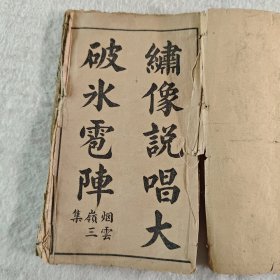 繡像説唱大
破氷雹陣
烟雲
嶺三
集